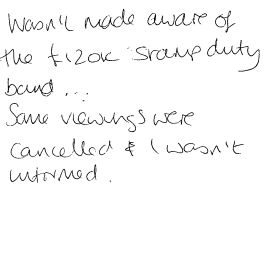 Wasn't made aware of
the £120k stamp duty
band...
Some viewings were
cancelled & I wasn't
informed.